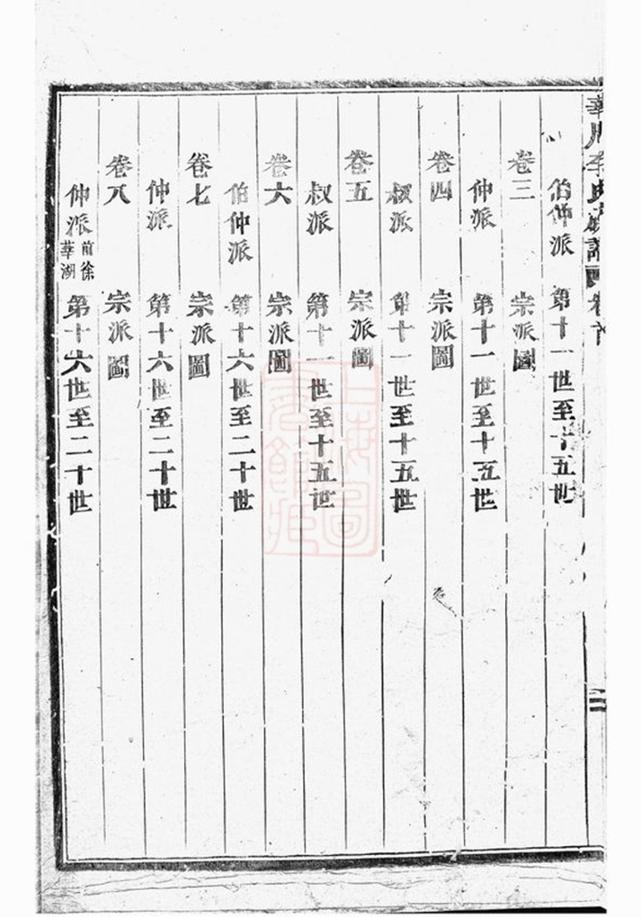 李氏 譜 卷首
伯仲派 第十一世至十五世
卷三 宗派圖
仲派 第十一世至十五世
卷四 宗派圖
叔派 第十一世至十五世
卷五 宗派圖
叔派 第十一世至十五世
卷六 宗派圖
伯仲派 第十六世至二十世
卷七 宗派圖
仲派 第十六世至二十世
卷八 宗派圖
仲派 前徐 華湖 第十六世至二十世
二
上海圖書館藏